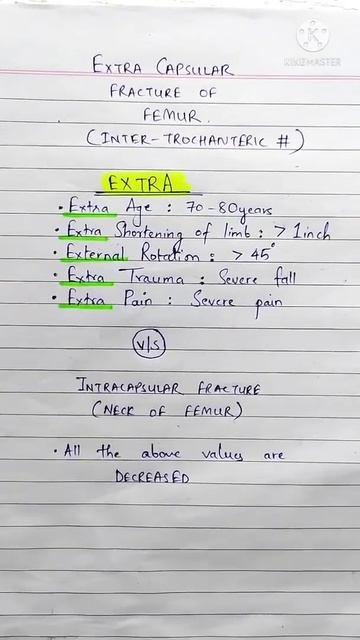 KINEMASTER
EXTRA CAPSULAR
FRACTURE OF
FEMUR.
(INTER-TROCHANTERIC #)
EXTRA
• Extra Age : 70-80years
• Extra Shortening of limb : > 1inch
• External Rotation : > 45°
• Extra Trauma : Severe fall
• Extra Pain : Severe pain
V/S
INTRACAPSULAR FRACTURE
(NECK OF FEMUR)
• All the above values are
DECREASED